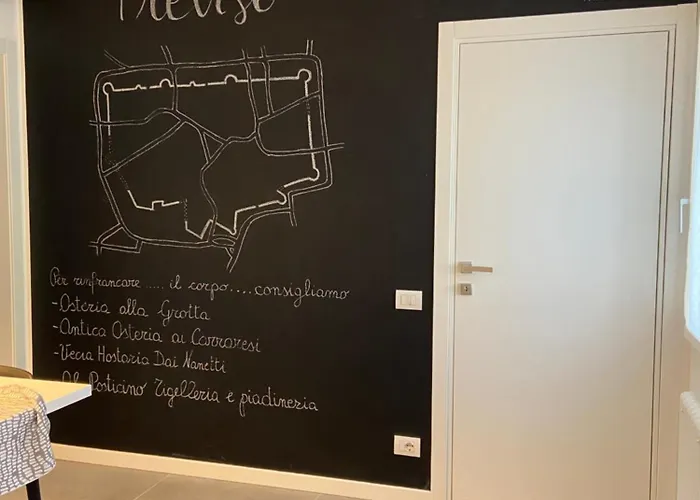 Treviso
Per rinfrancare .... il corpo.... consigliamo
- Osteria alla Grotta
- Antica Osteria ai Carraresi
- Vecia Hostaria Dai Nanetti
- Al Posticino Tigelleria e piadineria